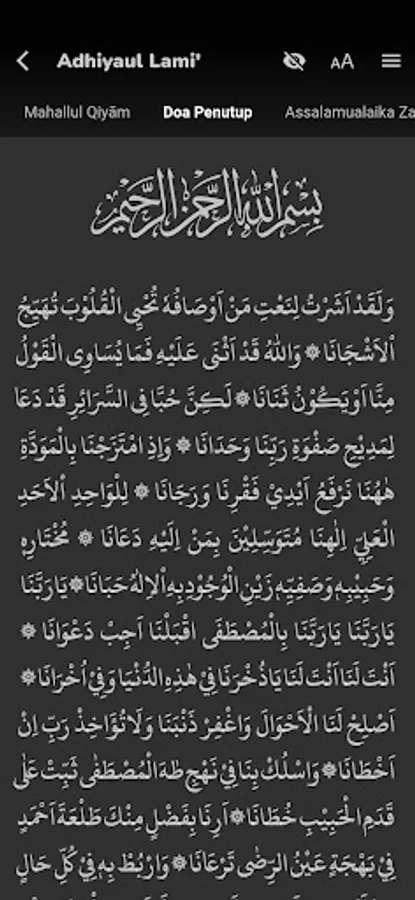 Adhiyaul Lami'
AA
Mahallul Qiyām Doa Penutup Assalamualaika Za
بِسْمِ اللهِ الرَّحْمٰنِ الرَّحِيْمِ
وَلَقَدْ اَشَرْتُ لِنَعْتِ مَنْ اَوْصَافُهُ تُحْيِى الْقُلُوْبَ تُهَيِّجُ
اْلاَشْجَانَا ۞ وَاللهُ قَدْ اَثْنَى عَلَيْهِ فَمَا يُسَاوِى الْقَوْلُ
مِنَّا اَوْ يَكُوْنُ ثَنَانَا ۞ لَكِنَّ حُبًّا فِى السَّرَائِرِ قَدْ دَعَا
لِمَدِيْحِ صَفْوَةِ رَبِّنَا وَحَدَانَا ۞ وَاِذِ امْتَزَجْنَا بِالْمَوَدَّةِ
هٰهُنَا نَرْفَعُ اَيْدِيْ فَقْرِنَا وَرَجَانَا ۞ لِلْوَاحِدِ اْلاَحَدِ
الْعَلِيِّ اِلٰهِنَا مُتَوَسِّلِيْنَ بِمَنْ اِلَيْهِ دَعَانَا ۞ مُخْتَارِهِ
وَحَبِيْبِهِ وَصَفِيِّهِ زَيْنِ الْوُجُوْدِ بِهِ اْلاِلٰهُ حَبَانَا ۞ يَارَبَّنَا
يَارَبَّنَا يَارَبَّنَا بِالْمُصْطَفَى اقْبَلْنَا اَجِبْ دَعْوَانَا ۞
اَنْتَ لَنَا اَنْتَ لَنَا يَاذُخْرَنَا فِيْ هٰذِهِ الدُّنْيَا وَفِيْ اُخْرَانَا ۞
اَصْلِحْ لَنَا الْاَحْوَالَ وَاغْفِرْ ذَنْبَنَا وَلَا تُؤَاخِذْ رَبِّ اِنْ
اَخْطَانَا ۞ وَاسْلُكْ بِنَا فِيْ نَهْجِ طٰهَ الْمُصْطَفٰى ثَبِّتْ عَلَى
قَدَمِ الْحَبِيْبِ خُطَانَا ۞ اَرِنَا بِفَضْلٍ مِنْكَ طَلْعَةَ اَحْمَدٍ
فِيْ بَهْجَةٍ عَيْنُ الرِّضٰى تَرْعَانَا ۞ وَارْبُطْ بِهِ فِيْ كُلِّ حَالٍ